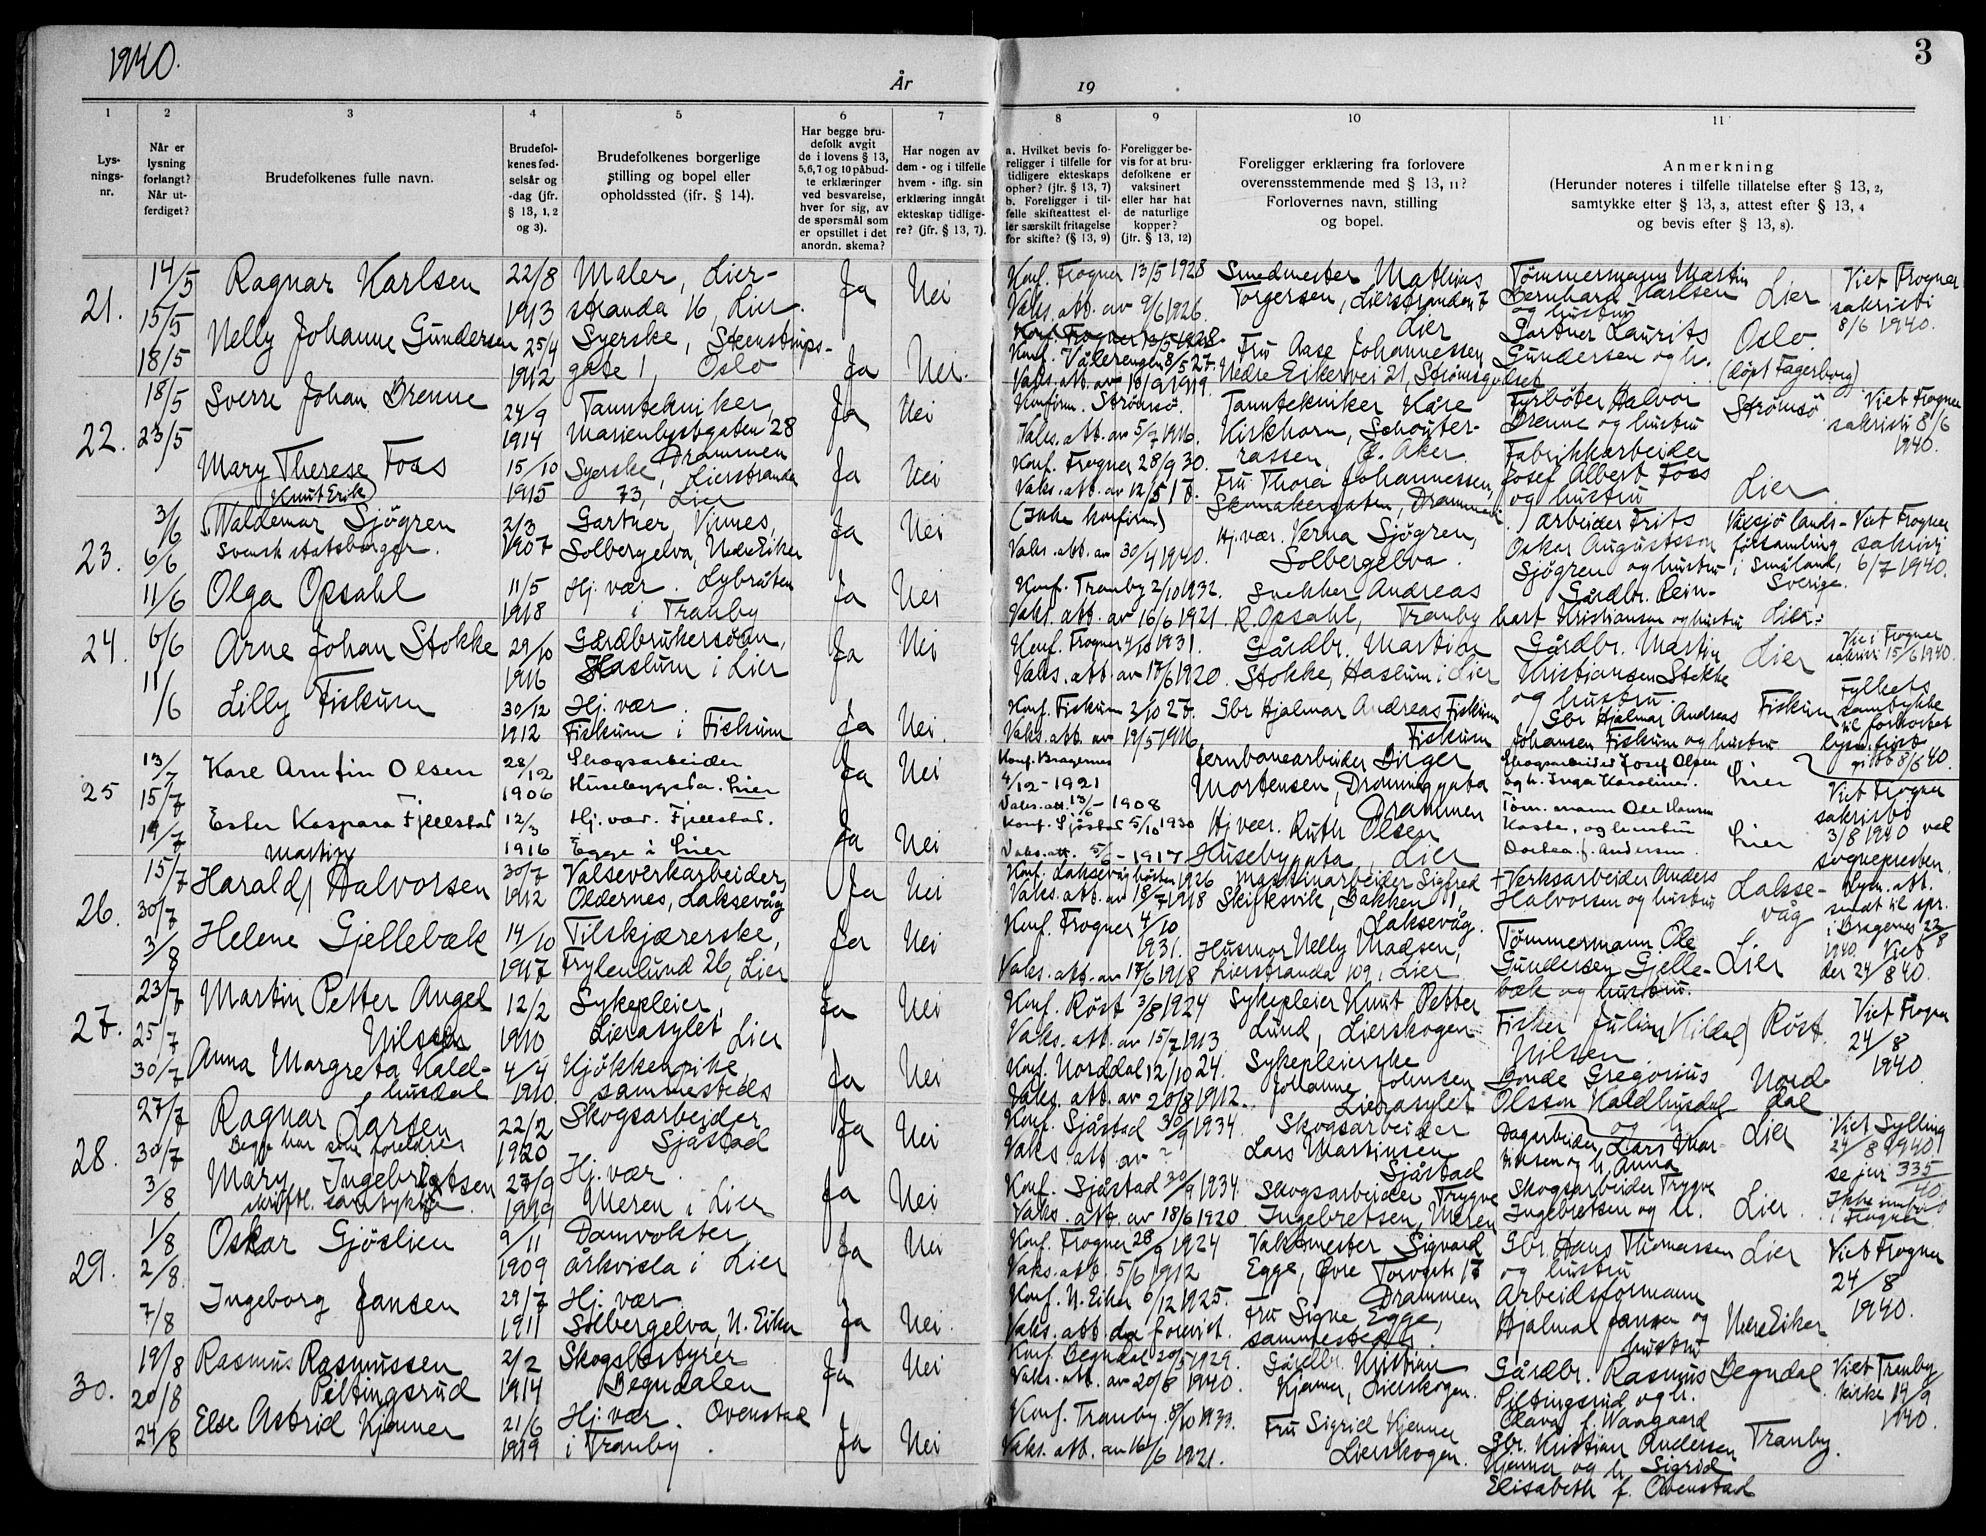 1940.
År
19
3
1
2
3
4
5
6
7
8
9
10
11
Lys-
nings-
nr.
Når er
lysning
forlangt?
Når ut-
ferdiget?
Brudefolkenes fulle navn.
Brudefol-
kenes fød-
selsår og
-dag (jfr.
§ 13, 1, 2
og 3).
Brudefolkenes borgerlige
stilling og bopel eller
opholdssted (ifr. § 14).
Har begge bru-
defolk avgit
de i lovens § 13,
5,6,7 og 10 påbud-
te erklæringer
ved besvarelse,
hver for sig, av
de spørsmål som
er opstillet i det
anordn. skema?
Har nogen av
dem - og i tilfelle
hvem - iflg. sin
erklæring inngåt
ekteskap tidlige-
re? (jfr. § 13, 7).
a. Hvilket bevis fo-
religger i tilfelle for
tidligere ekteskaps
ophør? (jfr. § 13, 7)
b. Foreligger i til-
felle skifteattest el-
ler særskilt fritagelse
for skifte? (§ 13, 9)
Foreligger be-
vis for at bru-
defolkene er
vaksinert
eller har hat
de naturlige
kopper?
(jfr. § 13, 12)
Foreligger erklæring fra forlovere
overensstemmende med § 13, 11?
Forlovernes navn, stilling
og bopel.
Anmerkning
(Herunder noteres i tilfelle tillatelse efter § 13, 2,
samtykke efter § 13, 3, attest efter § 13, 4
og bevis efter § 13, 8).
21.
14/5
15/5
18/5
Ragnar Karlsen
22/8
1913
Maler, Lier-
stranda 16, Lier.
Ja
Nei
Konf. Frogner 13/5 1928
Vaks. att. av 9/6 1926.
Smedmester Mathias
Torgersen, Lierstranden 7
Lier
Tømmermann Martin
Bernhard Karlsen
og hustru
Lier
Viet Frogner
sakristi
8/6 1940.
Nelly Johanne Gundersen
25/4
1912
Syerske, Steenstrups-
gate 1, Oslo
Ja
Nei.
Konf. Frogner 13/5 1928.
Konf. Vålerengen 8/5 27.
Vaks. att. av 18/9 1919.
Fru Aase Johannessen
Nedre Eikervei 21, Strømsgodset
Gartner Laurits
Gundersen og h.
Oslo.
(døpt Fagerborg)
22.
18/5
23/5
Sverre Johan Brenne
24/9
1914
Tanntekniker,
Marienlystgaten 28
Drammen
Ja
Nei
Konfirm. Strømsø.
Vaks. att. av 5/7 1916.
Tanntekniker Kåre
Kirkhorn, Schouter-
rassen, Ø. Aker.
Fyrbøter Halvor
Brenne og hustru
Strømsø
Viet Frogner
sakristi 8/6
1940.
Mary Therese Foss
15/10
1915
Syerske, Lierstranda
73, Lier
Ja
Nei
Konf. Frogner 28/9 30.
Vaks. att. av 12/5 17.
Fru Thora Johannessen,
Skomakergaten, Drammen
Fabrikkarbeider
Josef Albert Foss
og hustru
Lier
23.
3/6
6/6
11/6
Knut Erik
Waldemar Sjögren
Svensk statsborger.
2/3
1907
Gartner, Vinnes,
Solbergelva, Nedre Eiker
Ja
Nei
(Ikke konfirm)
Vaks. att. av 30/4 1940.
Hj. vær. Verna Sjögren,
Solbergelva.
Arbeider Frits
Oskar Augustsson
Sjögren og hustru
lands-
församling
i Småland,
Sverige.
Viet Frogner
sakristi
6/7 1940.
Olga Opsahl
11/5
1918
Hj. vær. Lybråten
i Tranby
Ja
Nei
Konf. Tranby 2/10 1932.
Vaks. att. av 16/6 1921.
Snekker Andreas
R. Opsahl, Tranby
Gårdbr. Rein-
hart Kristiansen og hustru
Lier.
24.
6/6
11/6
Arne Johan Stokke
29/10
1916
Gårdbrukersønn,
Haslum i Lier
Ja
Nei
Konf. Frogner 4/10 1931.
Vaks. att. av 17/6 1920.
Gårdbr. Martin
Stokke, Haslum i Lier
Gårdbr. Martin
Kristiansen Stokke
og hustru.
Lier
Vie i Frogner
sakristi 15/6 1940.
Lilly Fiskum
30/12
1912
Hj. vær.
Fiskum i Fiskum
Ja
Nei.
Konf. Fiskum 2/10 27.
Vaks. att. av 19/5 1916
Gbr Hjalmar Andreas Fiskum
Fiskum
Gbr Hjalmar Andreas
Johansen Fiskum og hustru
Fiskum
Fylkets
samtykke
til forkortet
lysn. frist
gitt 8/6 40.
25
13/7
15/7
19/7
Kare Arnfin Olsen
28/12
1906
Skogsarbeider
Husebygata. Lier
Ja
Nei
Konf. Bragernes
4/12-1921
Vaks. att. 13/6-1908
Jernbanearbeider Birger
Mortensen, Dronninggata
Drammen
Skogsarbeider Josef Olsen
og h. Inga Karoline.
Lier
Viet Frogner
sakristi
3/8 1940 ved
sogneprésten.
Ester Kaspara Fjellstad
12/3
1916
Hj. vær. Fjellstad.
Egge i Lier
Ja
Nei
Konf. Sjåstad 5/10 1930
Vaks. att. 5/6-1917
Hj vær. Ruth Olsen
Husebygata, Lier
Tøm. mann Ole Hansen
og hustru
Dorthea f. Andersen.
Lier
26.
15/7
30/7
3/8
Martin
Harald Halvorsen
30/7
1912
Valseverkarbeider,
Oldernes, Laksevåg
Ja
Nei
Konf. Laksevåg høsten 1926
Vaks. att. av 18/7 1918
Maskinarbeider Sigfred
Skiftesvik, Bakken 1,
Laksevåg.
+ Verksarbeider Anders
Halvorsen og hustru
Lakse-
våg
Lysn. att.
sendt til spr.
i Bragernes 22/8
1940. Viet
der 24/8 40.
Helene Gjellebæk
14/10
1917
Tilskjærerske,
Frylenlund 26, Lier
Ja
Nei
Konf. Frogner 4/10
1931.
Vaks. att. av 17/6 1918
Husmor Nelly Madsen,
Lierstranda 109, Lier
Tømmermann Ole
Gundersen Gjelle-
bæk og hustru.
Lier
27.
23/7
25/7
30/7
Martin Petter Angel
Nilsen
12/2
1910
Sykepleier,
Lierasylet Lier
Ja
Nei
Konf. Røst 3/8 1924
Vaks. att. av 15/7 1913
Sykepleier Knut Petter
Lund, Lierskogen
Fisker Julian Kildal
Nilsen
Røst
Viet Frogner
24/8
1940.
Anna Margreta Kald-
husdal
4/4
1910
Kjøkkenpike,
sammesteds
Ja
Nei
Konf. Norddal 12/10 24.
Vaks. att. av 20/8 1912.
Sykepleierske
Johanne Johnsen
Lierasylet
Bonde Gregorius
Olsson Kaldhusdal
og h.
Nord-
dal
28.
27/7
30/7
3/8
Ragnar Larsen
Begge har samme foreldrer
22/2
1920
Skogsarbeider
Sjåstad
Ja
Nei
Konf. Sjåstad 30/9 1934.
Vaks. att av ?
Skogsarbeider
Lars Martinsen
Sjåstad
Dagarbeider Lars Mar-
tinsen og h. Anna
Lier
Viet Sylling
24/8 1940
se jnr 335/40
Ikke innført
i Frogner
Mary Ingebretsen
skriftl. samtykke.
27/9
1919
Hj. vær.
Meren i Lier
Ja
Nei
Konf. Sjåstad 30/9 1934.
Vaks. att. av 18/6 1920
Skogsarbeider Trygve
Ingebretsen, Meren
Skogsarbeider Trygve
Ingebretsen og h.
Lier.
29.
1/8
2/8.
7/8
Oskar Gjøslien
9/11
1909
Damvokter
Årkvisla i Lier
Ja
Nei
Konf. Frogner 28/9 1924
Vaks. att. 5/6 1912
Vaktmester Sigvard
Egge, Øvre Torvgate 17
Drammen
Gbr. Hans Thomassen
og hustru
Lier
Viet Frogner
24/8
1940.
Ingeborg Jansen
29/7
1911
Hj. vær
Solbergelva, N. Eiker
Ja
Nei.
Konf. N. Eiker 6/12 1925.
Vaks. att da forevist.
Fru Signe Egge,
sammesteds.
Arbeidsformann
Hjalmar Jansen og
hustru
Nedre Eiker
30.
19/8
20/8
24/8
Rasmus Rasmussen
Piltingsrud
2/2
1914
Skogsbestyrer
Begndalen
Ja
Nei
Konf. Begndal 20/5 1929.
Vaks. att. av 20/8 1940.
Gårdbr. Kristian
Kjenner, Lierskogen.
Gårdbr. Rasmus
Piltingsrud og h.
Olava f. Waagaard
Begndal
Viet Tranby
kirke 14/9
1940.
Else Astrid Kjenner
21/6
1919
Hj. vær. Ovenstad
i Tranby.
Ja
Nei
Konf. Tranby 8/10 1933.
Vaks. att. av 16/6 1921.
Fru Sigrid Kjenner
Lierskogen.
Gbr. Kristian Andersen
Kjenner og h. Sigrid
Elisabeth f. Ovenstad
Tranby.